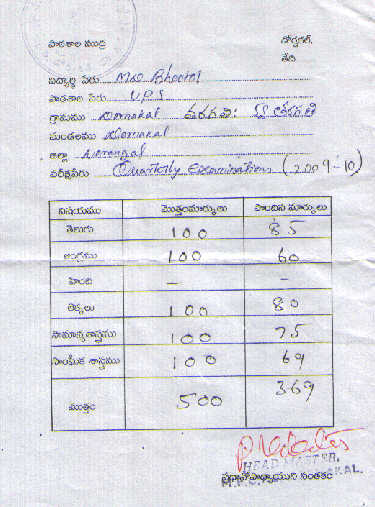 పాఠశాల ముద్ర
తేది
విద్యార్థి పేరు
పాఠశాల పేరు U.P.S
గ్రామము Dornakal తరగతి:
మండలము Dornakal
జిల్లా Warangal
పరీక్షపేరు Quarterly Examination (2009-10)
విషయము మొత్తంమార్కులు పొందిన మార్కులు
తెలుగు 100 85
ఆంగ్లము 100 60
హింది - -
లెక్కలు 100 80
సామాన్యశాస్త్రము 100 75
సాంఘీక శాస్త్రము 100 69
మొత్తం 500 369
HEAD MASTER,
ప్రధానోపాధ్యాయుని సంతకం